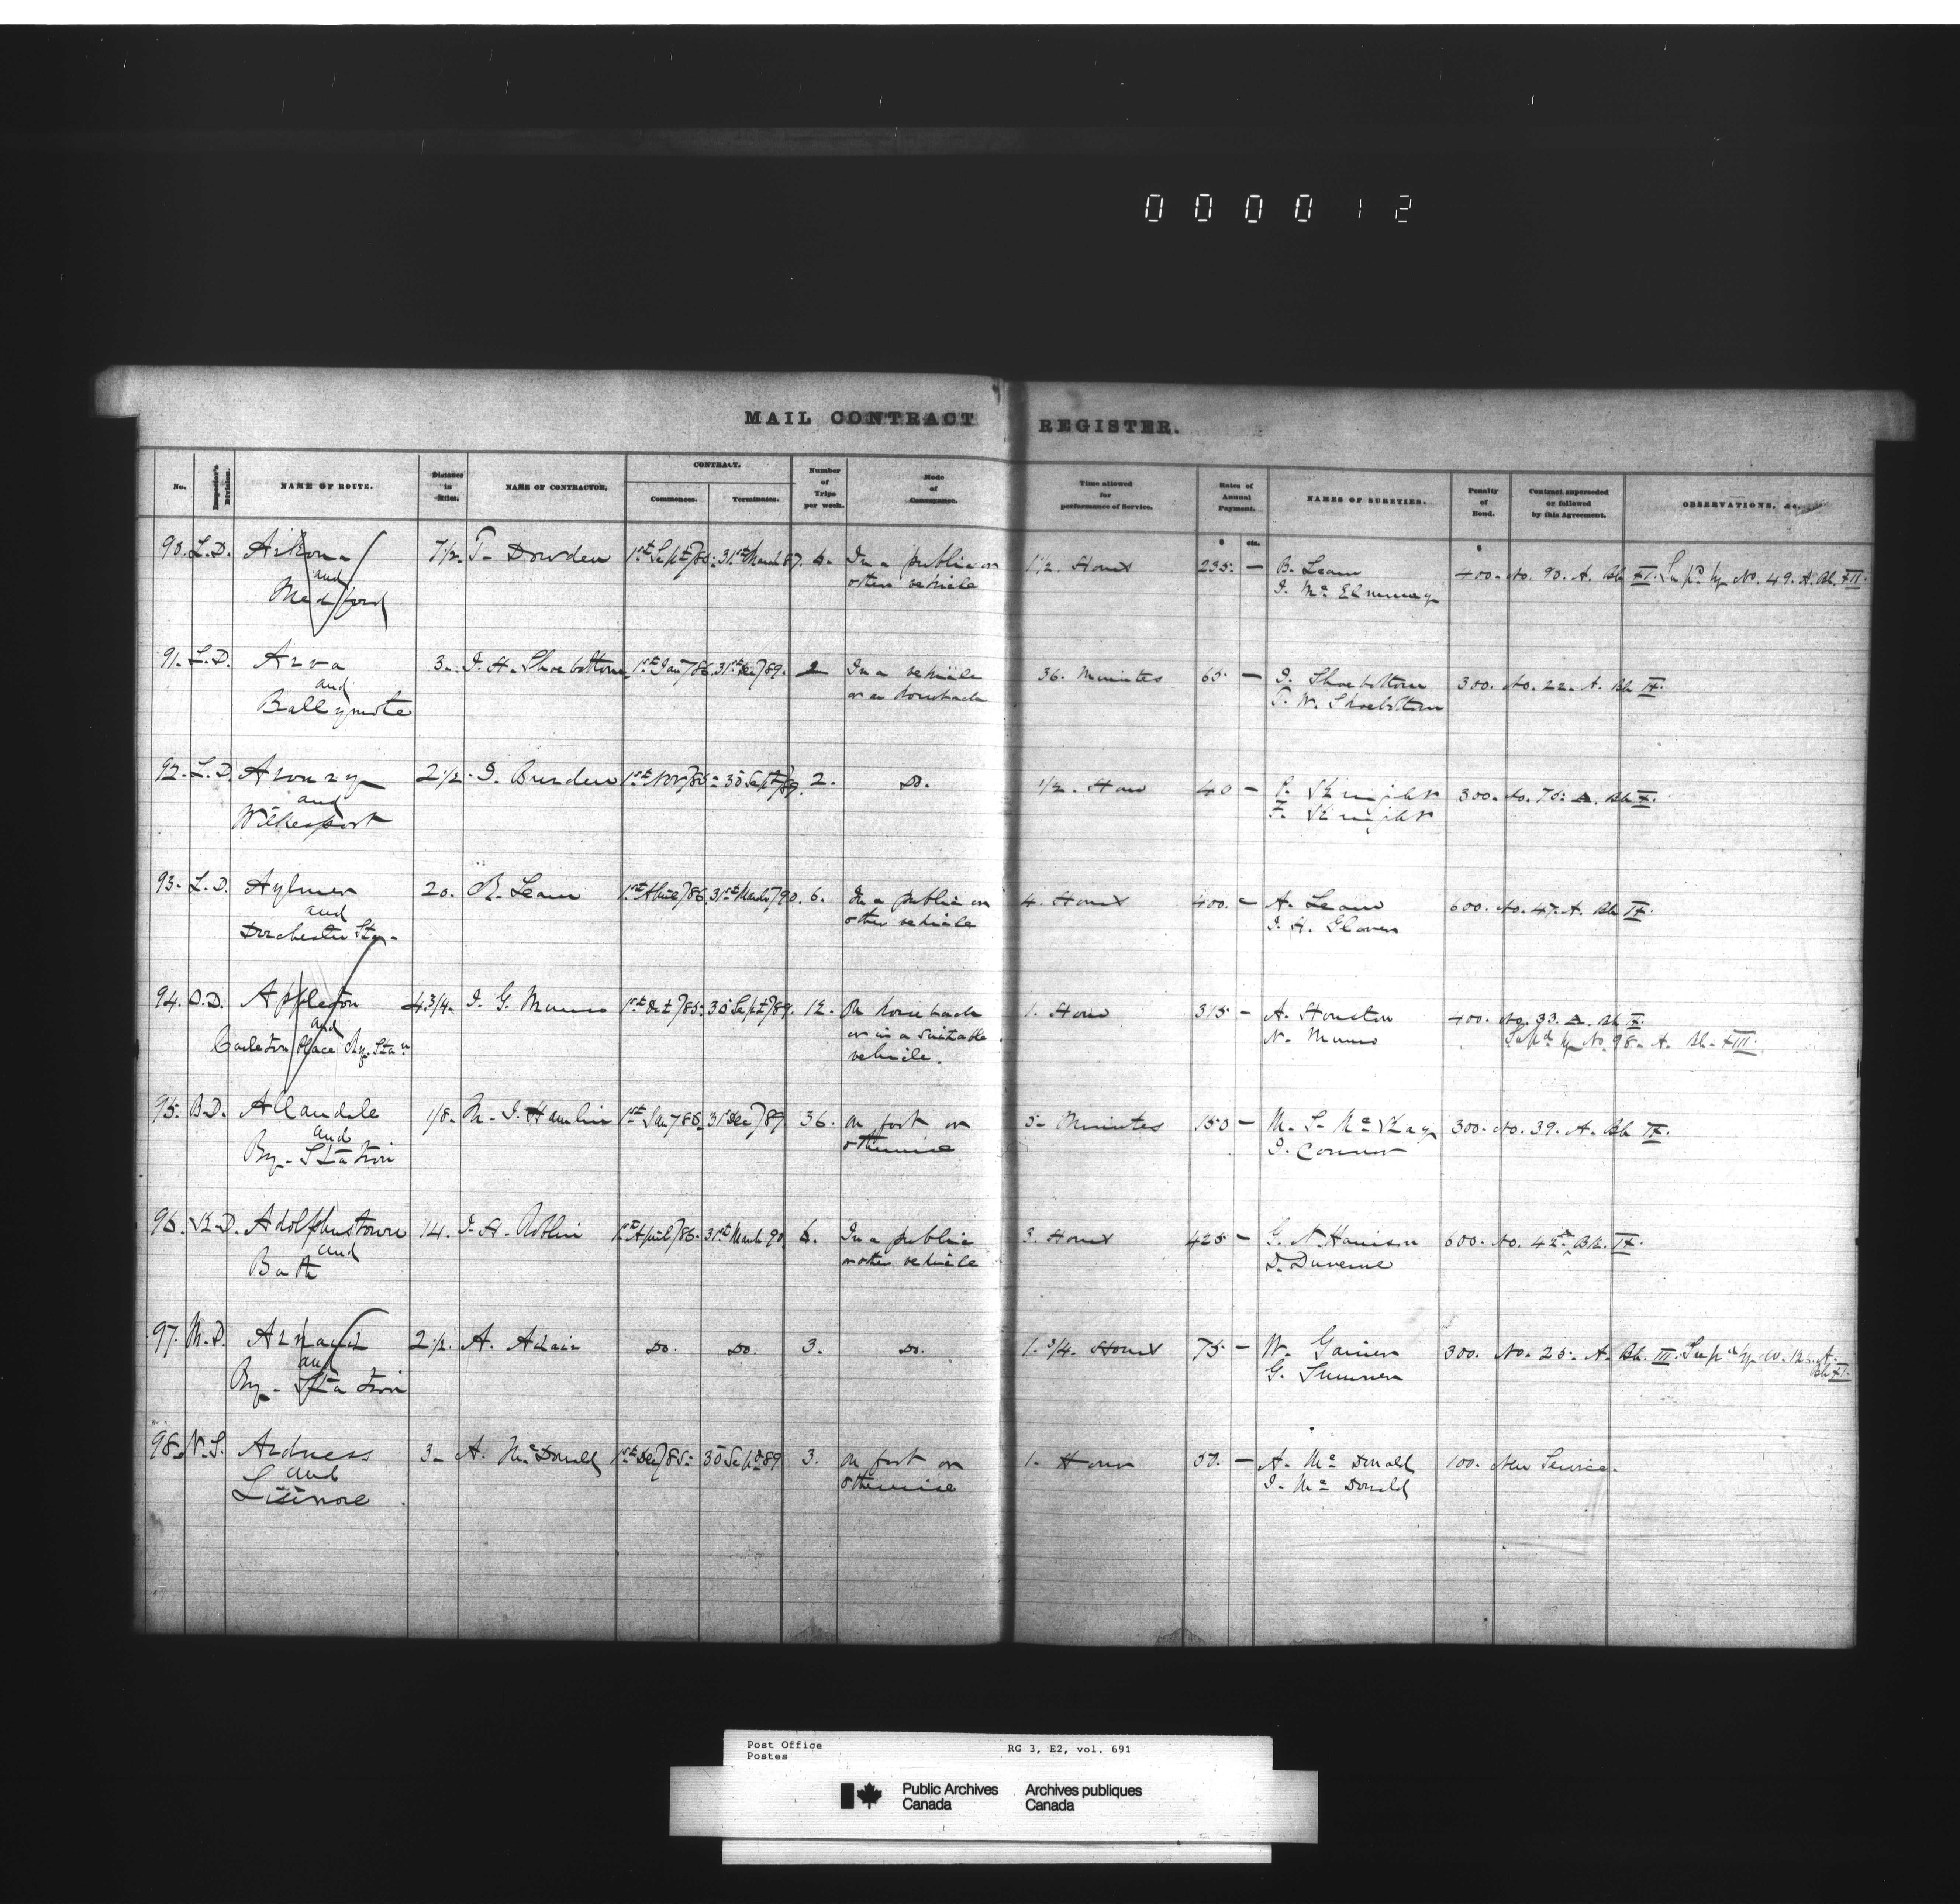 0 0 0 0 1 2
MAIL CONTRACT REGISTER.
No. Inspector's Division. NAME OF ROUTE. Distance in Miles. NAME OF CONTRACTOR. CONTRACT. Commences. Terminates. Number of Trips per week. Mode of Conveyance. Time allowed for performance of Service. Rates of Annual Payment. NAMES OF SURETIES. Penalty of Bond. Contract superseded or followed by this Agreement. OBSERVATIONS, &c.
$ cts. $
90. L.D. Arkona 7 1/2 T. Dowden 1st Sept/85 31st March 87. 6. In a public or 1 1/2 Hours 235 — B. Leam 400. No. 90. A. Bk XI. Supd by No. 49. A. Bk. XII.
and other vehicle J. Mc
Medford
91. L.D. Arva 3. J. H. Shoebottom 1st Jany/86 31st Dec/89. 2 In a vehicle 36. Minutes 65 — J. Shoebottom 300. No. 22. A. Bk IX.
and or on horseback T. W. Shoebottom
Ballymote
92. L.D. 2 1/2 J. Burden 1st Nov/85 30 Sept/89. 2. Do. 1/2. Hour 40 — P. Knight 300. No. 75 A. Bk X.
and F. Knight
Wilkesport
93. L.D. Aylmer 20. R. Leam 1st April/86 31st March/90. 6. In a public or 4. Hours 400. — A. Leam 600. No. 47. A. Bk IX.
and other vehicle J. H. Glover
Dorchester Stn.
94. O.D. Appleton 4 3/4. J. G. Munro 1st Oct/85 30 Sept/89. 12. On horseback 1. Hour 315 — A. Houston 400. No. 33. A. Bk X.
and or in a suitable N. Munro Supd by No. 98. A. Bk. XIII.
Carleton Place Ry. Stan vehicle.
95. B.D. Allandale 1/8. M. J. Hamlin 1st Jany 86 31 Dec/89 36. On foot or 5. Minutes 150 — M. S. McKay 300. No. 39. A. Bk IX.
and otherwise J. Connor
Ry. Station
96. K.D. Adolphustown 14. J. H. Roblin 1st April/86. 31st March 90 6. In a public 3. Hours 425 — G. N. Harrison 600. No. 42 A Bk. IX.
and or other vehicle D.
Bath
97. M.D. 2 1/2. A. Adair Do. Do. 3. Do. 1. 3/4. Hours 75 — W. 300. No. 25. A. Bk. III. Supd by No. A.
and G. Sumner Bk XI.
Ry. Station
98. N.S. Ardness 3. A. McDonald 1st Dec/85 30 Sept 89 3. On foot or 1. Hour 50. — A. McDonald 100. New Service.
and otherwise J. McDonald
Lismore
Post Office RG 3, E2, vol. 691
Postes
Public Archives Archives publiques
Canada Canada